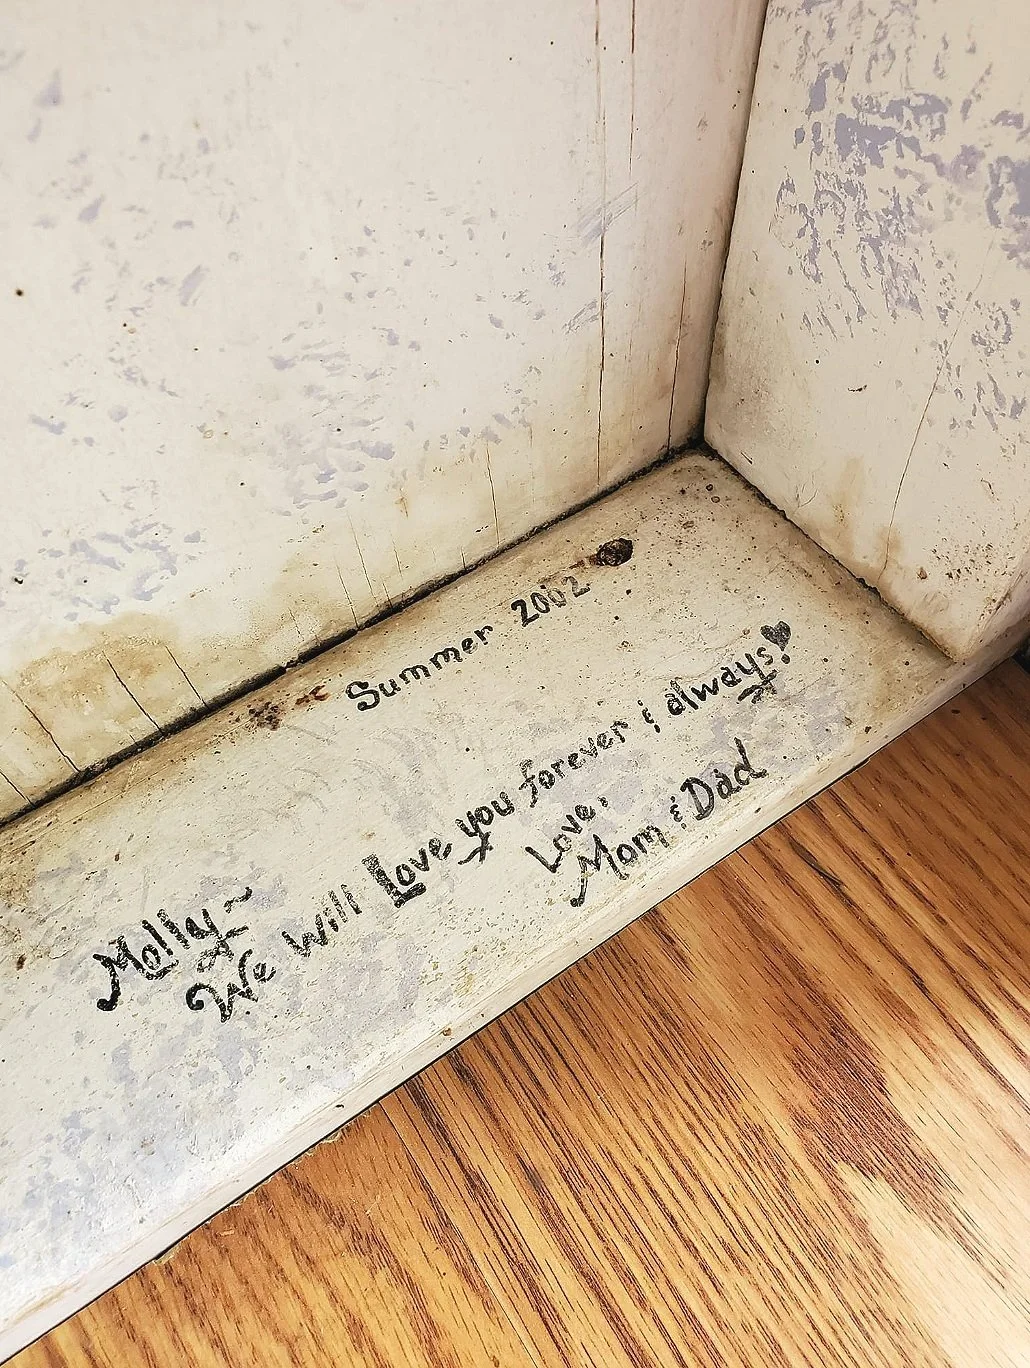 Summer 2002
Molly ~
We will Love you forever & always! ♥
Love,
Mom & Dad